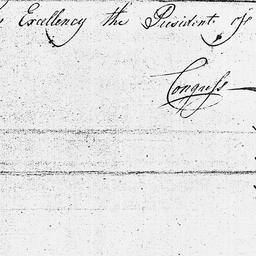 Excellency the President of
Congress